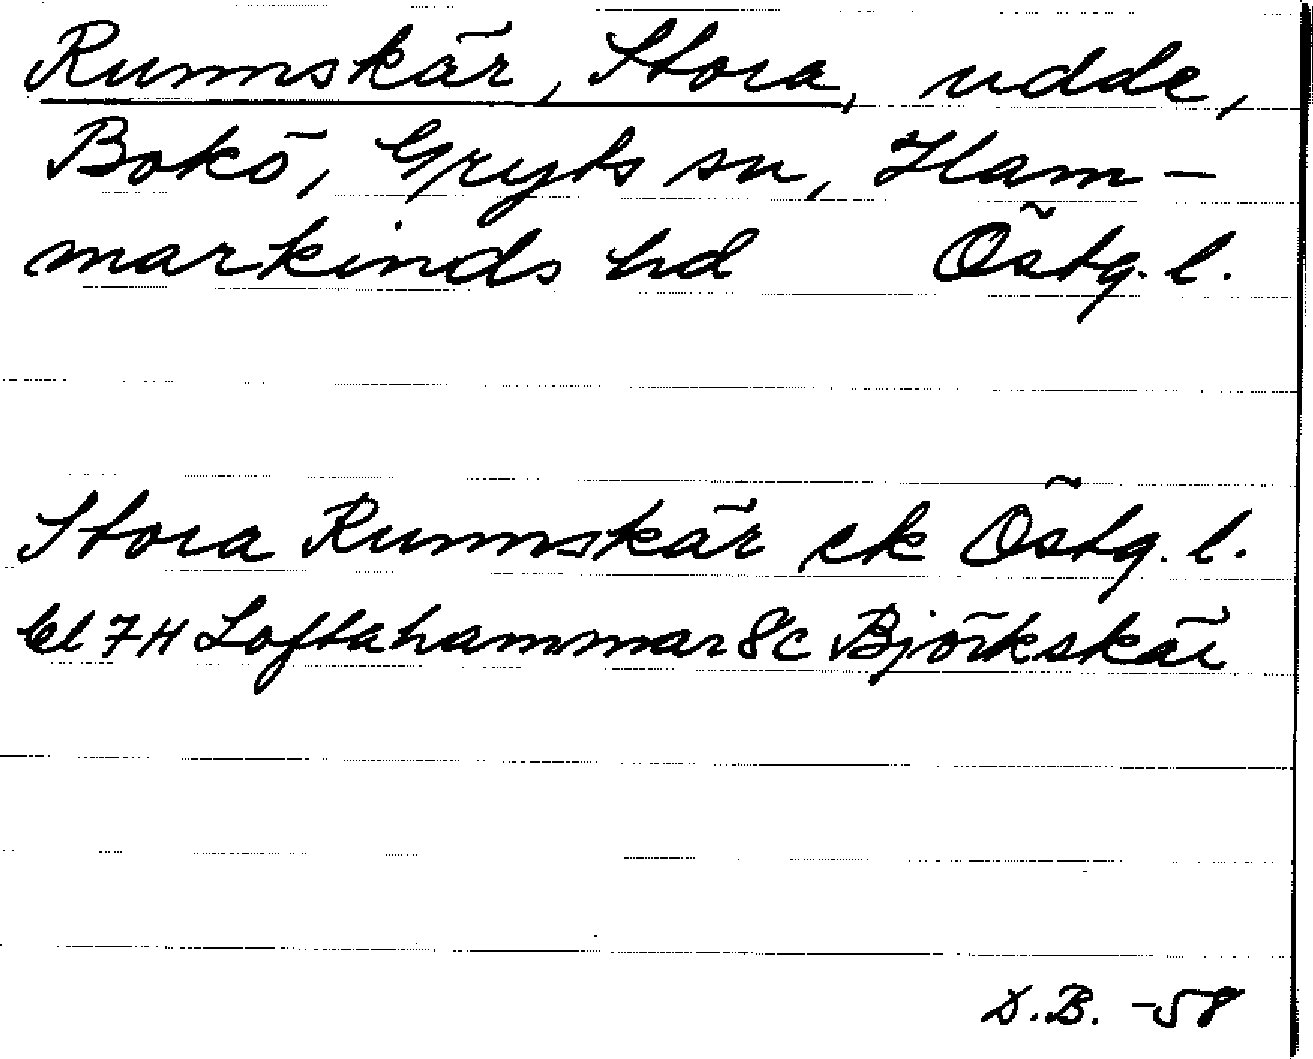 Rumskär, Stora, udde,
Bokö, Gryts sn, Ham-
markinds hd Östg. l.
Stora Rumskär ek Östg. l.
bl 7H Loftahammar 8c Björkskär
D.B. -58